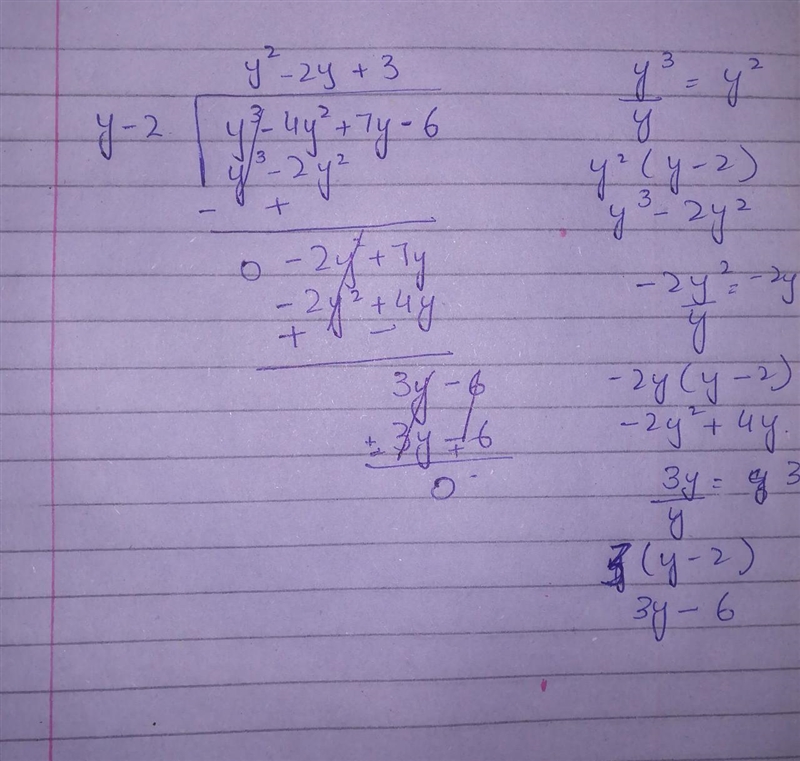 y² - 2y + 3
y - 2 y³ - 4y² + 7y - 6
y³ - 2y²
- +
0 - 2y² + 7y
- 2y² + 4y
+ -
3y - 6
3y - 6
- +
0
y³/y = y²
y² (y - 2)
y³ - 2y²
-2y²/y = -2y
-2y (y - 2)
-2y² + 4y.
3y/y = 3
(y - 2)
3y - 6